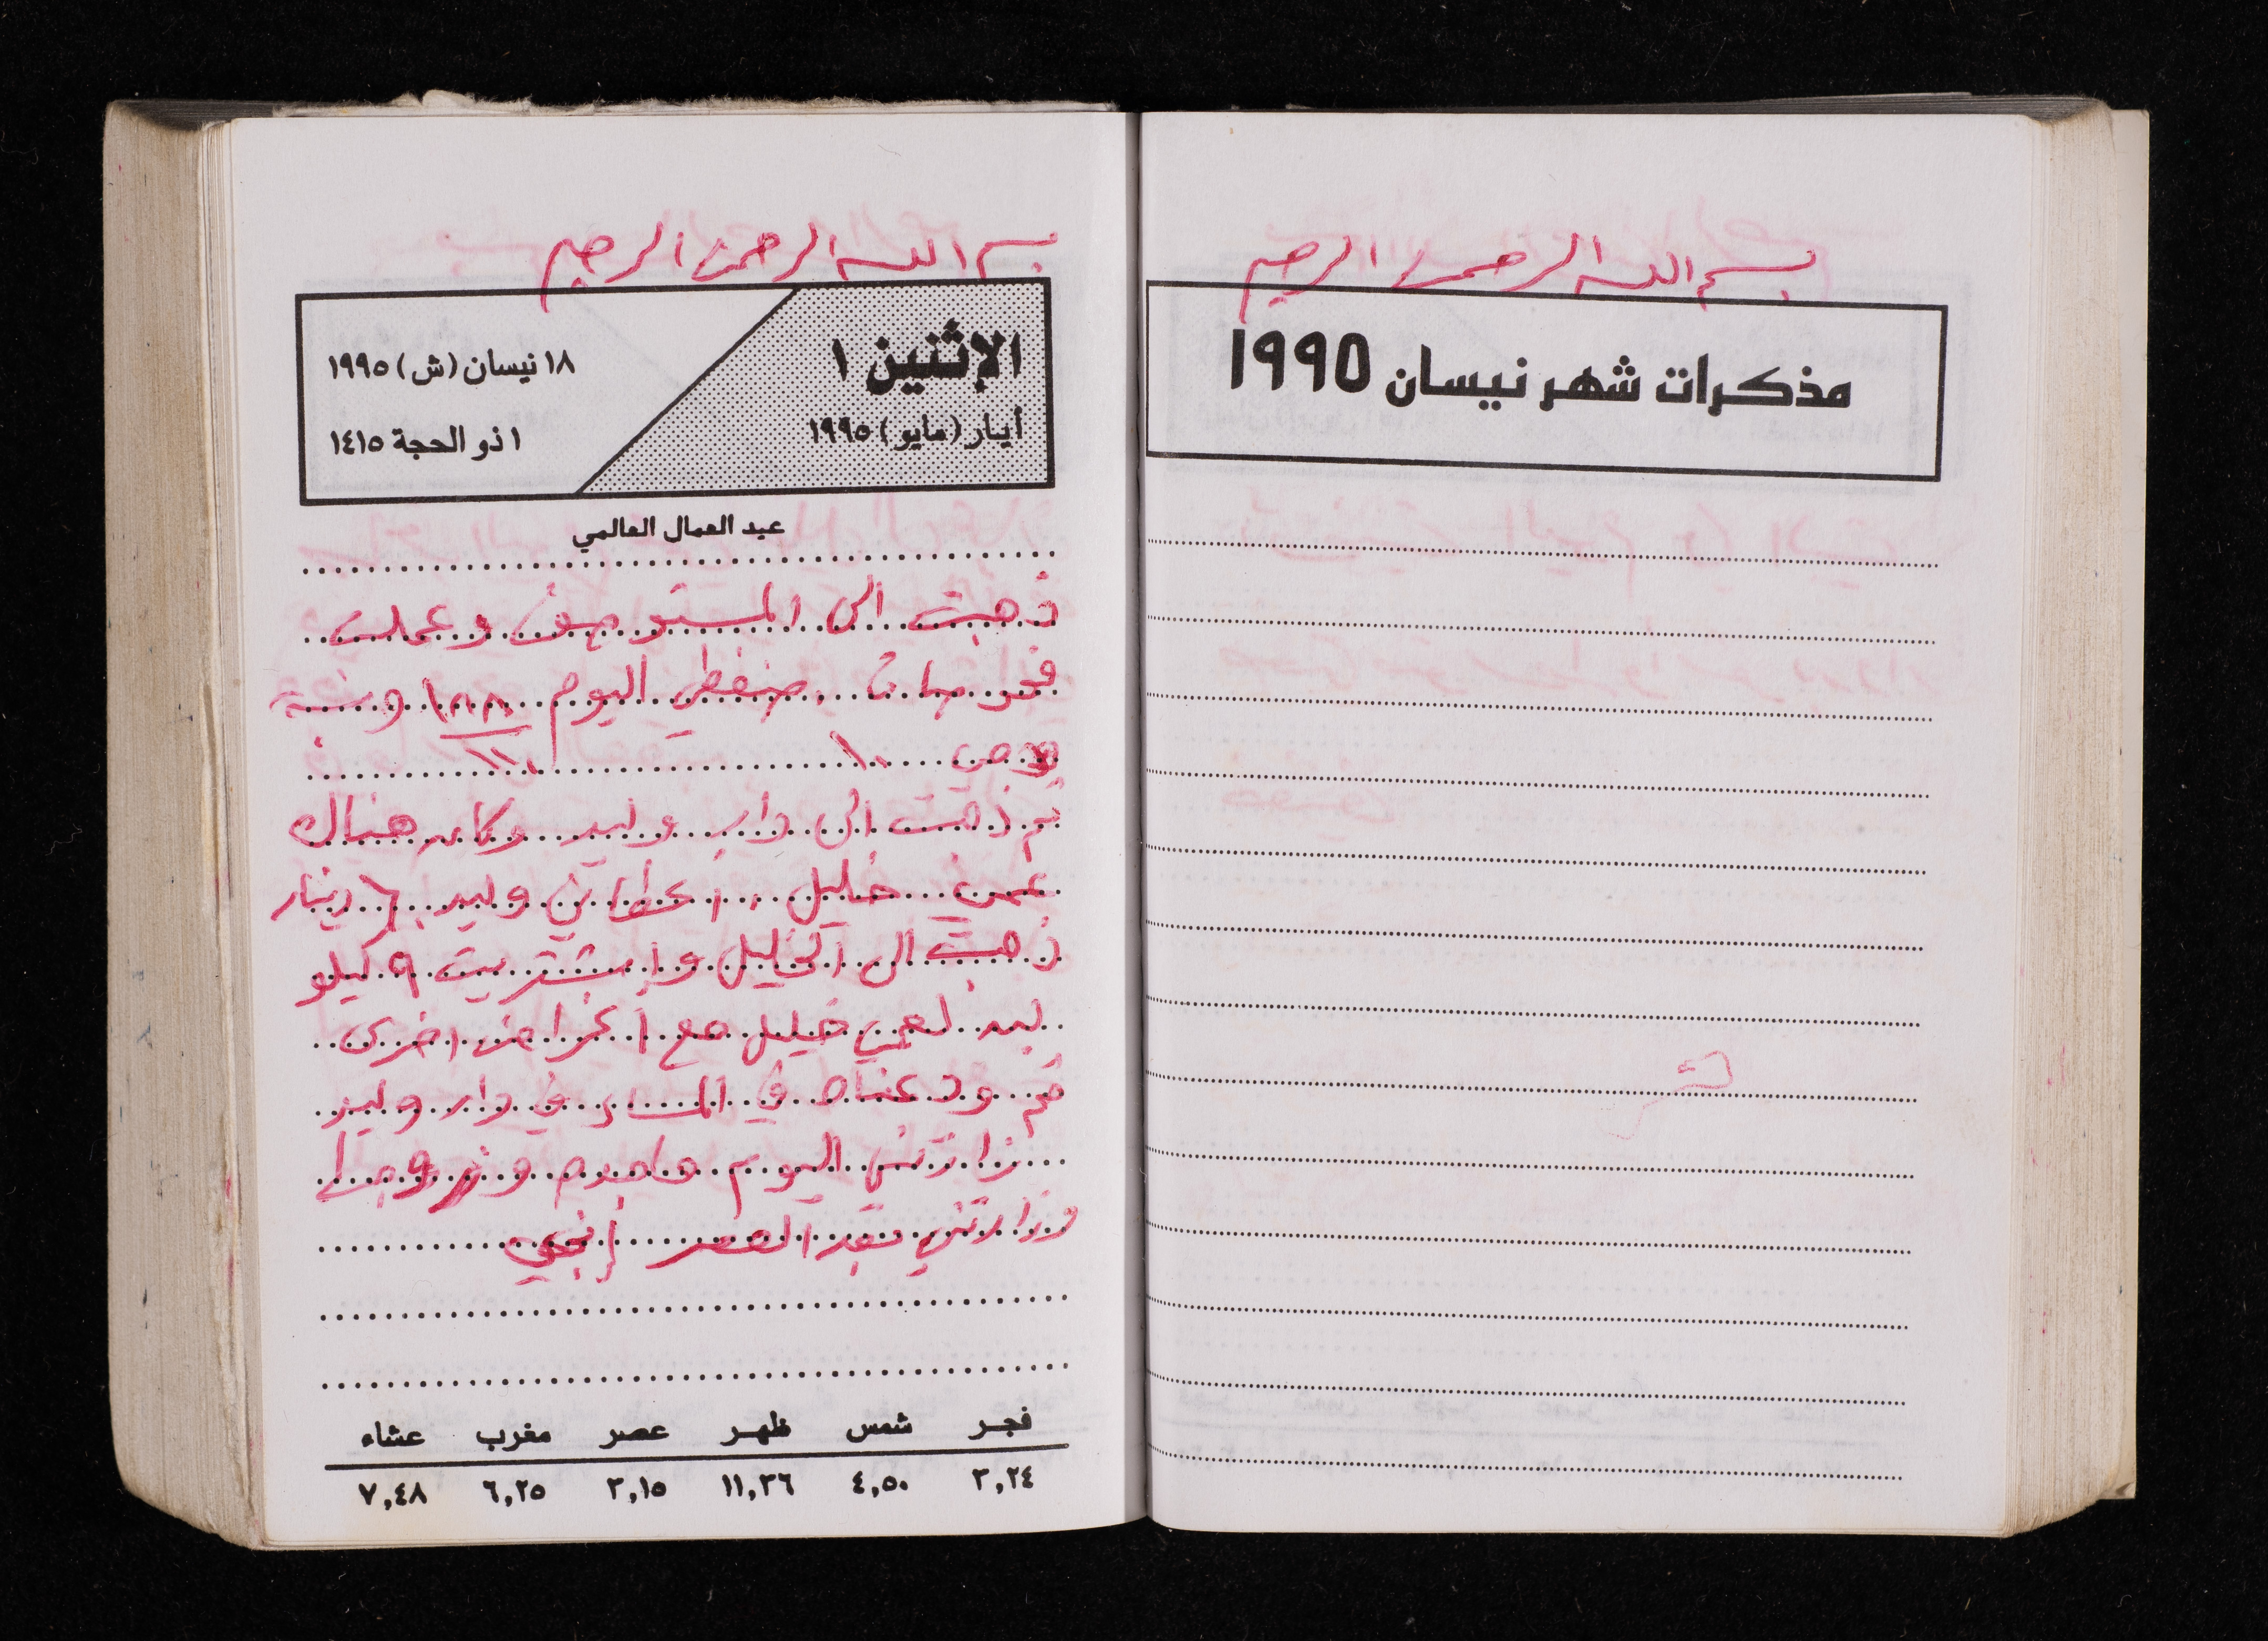 بسم الله الرحمن الرحيم
مذكرات شهر نيسان ١٩٩٥
بسم الله الرحمن الرحيم
الإثنين ١
أيار (مايو) ١٩٩٥
١٨ نيسان (ش) ١٩٩٥
١ ذو الحجة ١٤١٥
عيد العمال العالمي
ذهبت الى المستوصف وعملت
فحوصات ضغطي اليوم ١٨٨ ونسبة
١١٠
ثم ذهبت الى دار وليد وكان هناك
عمي خليل اعطاني وليد دينار
ذهبت الى الخليل واشتريت ٩ كيلو
لبن لعمي خليل مع اغراض اخرى
ثم ودعناه في المساء في دار وليد
زارتني اليوم ماجده وزوجها
وزارتني بعد العصر
فجر شمس ظهر عصر مغرب عشاء
٣,٢٤ ٤,٥٠ ١١,٣٦ ٣,١٥ ٦,٢٥ ٧,٤٨